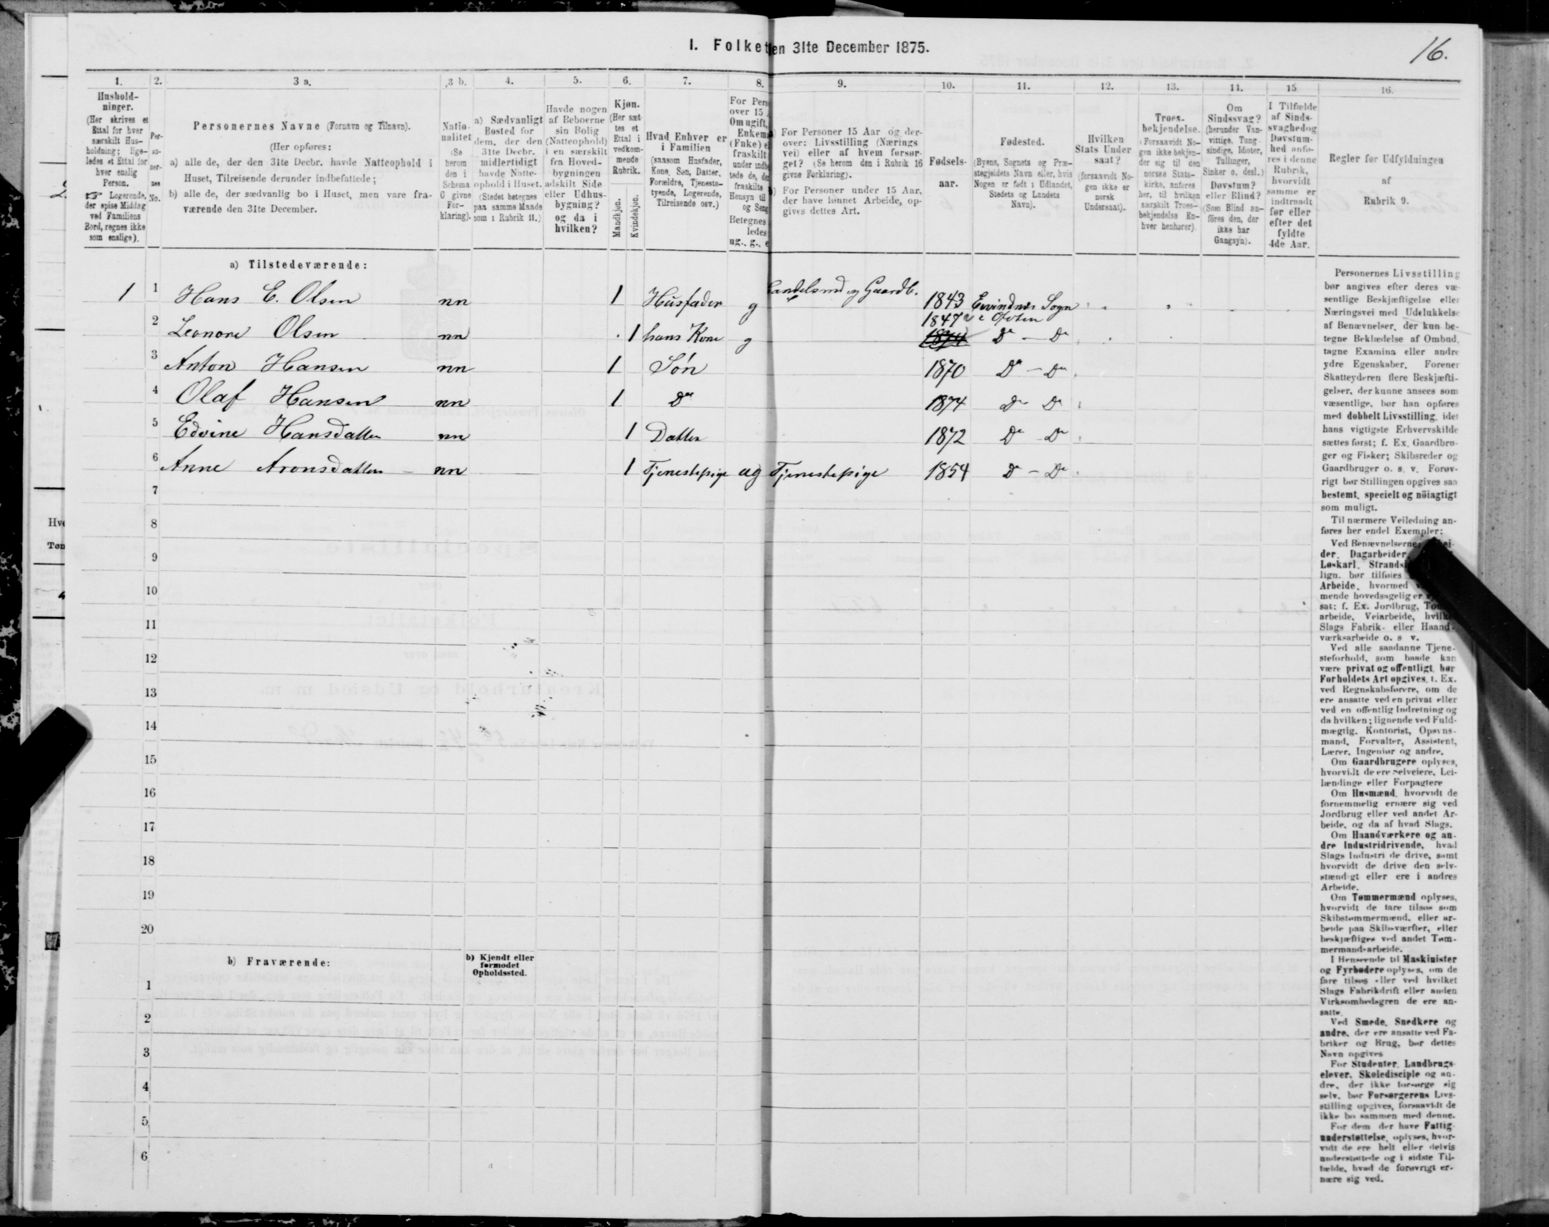 I. Folket en 31te December 1875.
16.
1. 2. 3 a. 3 b. 4. 5. 6. 7. 8. 9. 10. 11. 12. 13. 11. 15 16.
Hushold-
ninger.
(Her skrives et
Ettal for hver
særskilt Hus-
holdning; lige-
ledes et Ettal for
hver enslig
Person.
Logerende,
der spise Middag
ved Familiens
Bord, regnes ikke
som enslige).
Per-
so-
ner-
nes
No.
Personernes Navne (Fornavn og Tilnavn).
(Her opføres:
a) alle de, der den 31te Decbr. havde Natteophold i
Huset, Tilreisende derunder indbefattede;
b) alle de, der sædvanlig bo i Huset, men vare fra-
værende den 31te December.
Natio-
nalitet
(Se
herom
den i
Schema
O givne
For-
klaring).
a) Sædvanligt
Bosted for
dem, der den
31te Decbr.
midlertidigt
havde Natte-
ophold i Huset.
(Stedet betegnes
paa samme Maade
som i Rubrik 11.)
Havde nogen
af Beboerne
sin Bolig
(Natteophold)
i en særskilt
fra Hoved-
bygningen
adskilt Side-
eller Udhus-
bygning?
og da i
hvilken?
Kjøn.
(Her sæt-
tes et
Ettal i
vedkom-
mende
Rubrik.
Mandkjøn.
Kvindekjøn.
Hvad Enhver er
i Familien
(saasom Husfader,
Kone, Søn, Datter,
Forældre, Tjeneste-
tyende, Logerende,
Tilreisende osv.)
For Pers
over 15
Om ugift,
Enkem
(Enke) e
fraskilt
For Personer 15 Aar og der-
over: Livsstilling (Nærings-
vei) eller af hvem forsør-
get? (Se herom den i Rubrik 16
givne Forklaring).
For Personer under 15 Aar,
der have lønnet Arbeide, op-
gives dettes Art.
Fødsels-
aar.
Fødested.
(Byens, Sognets og Præ-
stegjeldets Navn eller, hvis
Nogen er født i Udlandet,
Stedets og Landets
Navn).
Hvilken
Stats Under-
saat?
(forsaavidt No-
gen ikke er
norsk
Undersaat).
Troes-
bekjendelse.
(Forsaavidt No-
gen ikke bekjen-
der sig til den
norske Stats-
kirke, anføres
her, til hvilken
særskilt Troes-
bekjendelse En-
hver henhører).
Om
Sindssvag?
(herunder Van-
vittige, Tung-
sindige, Idioter,
Tullinger,
Sinker o. desl.)
Døvstum?
eller Blind?
(Som Blind an-
føres den, der
ikke har
Gangsyn).
I Tilfælde
af Sinds-
svaghed og
Døvstum-
hed anfø-
res i denne
Rubrik,
hvorvidt
samme er
indtraadt
før eller
efter det
fyldte
4de Aar.
Regler for Udfyldningen
af
Rubrik 9.
a) Tilstedeværende:
1 1 Hans E. Olsen nn 1 Husfader g Handelsmd og Gaardb. 1843 Eivindnæs Sogn
i Ofoten
2 Leonore Olsen nn 1 hans Kone g 1847 Do - Do
3 Anton Hansen nn 1 Søn 1870 Do - Do
4 Olaf Hansen nn 1 Do 1874 Do Do
5 Edvine Hansdatter nn 1 Datter 1872 Do Do
6 Anne Aronsdatter nn 1 Tjenestepige ug Tjenestepige 1854 Do - Do
7
8
9
10
11
12
13
14
15
16
17
18
19
20
b) Fraværende:
b) Kjendt eller
formodet
Opholdssted.
1
2
3
4
5
6
Personernes Livsstilling
bør angives efter deres væ-
sentlige Beskjæftigelse eller
Næringsvei med Udelukkelse
af Benævnelser, der kun be-
tegne Beklædelse af Ombud,
tagne Examina eller andre
ydre Egenskaber. Forener
Skatteyderen flere Beskjæfti-
gelser, der kunne ansees som
væsentlige, bør han opføres
med dobbelt Livsstilling, idet
hans vigtigste Erhvervskilde
sættes først; f. Ex. Gaardbru-
ger og Fisker; Skibsreder og
Gaardbruger o. s. v. Forøv-
rigt bør Stillingen opgives saa
bestemt, specielt og nøiagtigt
som muligt.
Til nærmere Veiledning an-
føres her endel Exempler:
Ved Benævnelserne
der, Dagarbeider
Løskarl, Strands
lign. bør tilføies
Arbeide, hvormed
mende hovedsagelig er
sat; f. Ex. Jordbrug, Tøm
arbeide, Veiarbeide, hvilke
Slags Fabrik- eller Haand-
værksarbeide o. s. v.
Ved alle saadanne Tjene-
steforhold, som baade kan
være privat og offentligt, bør
Forholdets Art opgives, t. Ex.
ved Regnskabsførere, om de
ere ansatte ved en privat eller
ved en offentlig Indretning og
da hvilken; lignende ved Fuld-
mægtig, Kontorist, Opsyns-
mand, Forvalter, Assistent,
Lærer, Ingeniør og andre.
Om Gaardbrugere oplyses,
hvorvidt de ere Selveiere, Lei-
lændinge eller Forpagtere
Om Husmænd, hvorvidt de
fornemmelig ernære sig ved
Jordbrug eller ved andet Ar-
beide, og da af hvad Slags.
Om Haandværkere og an-
dre Industridrivende, hvad
Slags Industri de drive, samt
hvorvidt de drive den selv-
stændigt eller ere i andres
Arbeide.
Om Tømmermænd oplyses,
hvorvidt de fare tilsøs som
Skibstømmermænd, eller ar-
beide paa Skibsværfter, eller
beskjæftiges ved andet Tøm-
mermandsarbeide.
I Henseende til Maskinister
og Fyrbødere oplyses, om de
fare tilsøs eller ved hvilket
Slags Fabrikdrift eller anden
Virksomhedsgren de ere an-
satte.
Ved Smede, Snedkere og
andre, der ere ansatte ved Fa-
briker og Brug, bør dettes
Navn opgives
For Studenter, Landbrugs-
elever, Skoledisciple og an-
dre, der ikke forsørge sig
selv, bør Forsørgerens Livs-
stilling opgives, forsaavidt de
ikke bo sammen med denne.
For dem der have Fattig-
understøttelse, oplyses, hvor-
vidt de ere helt eller delvis
understøttede og i sidste Til-
fælde, hvad de forøvrigt er-
nære sig ved.